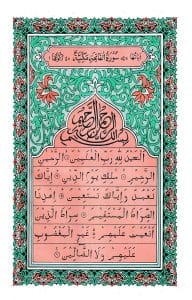 سورة الفاتحة مكية
بسم الله الرحمن الرحيم
الحمد لله رب العلمين الرحمن
الرحيم ملك يوم الدين اياك
نعبد واياك نستعين اهدنا
الصراط المستقيم صراط الذين
انعمت عليهم غير المغضوب
عليهم ولا الضالين